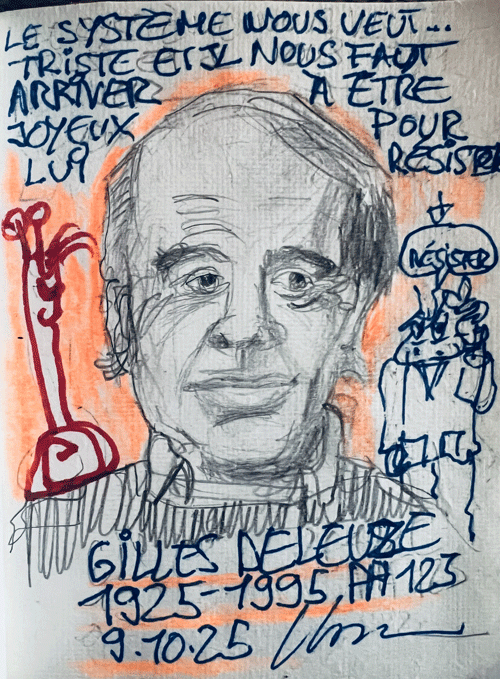 LE SYSTÈME NOUS VEUT...
TRISTE ET IL NOUS FAUT
ARRIVER À ÊTRE
JOYEUX POUR
LUI RÉSISTER
RÉSISTER
GILLES DELEUZE
1925-1995, AA 123
9.10.25